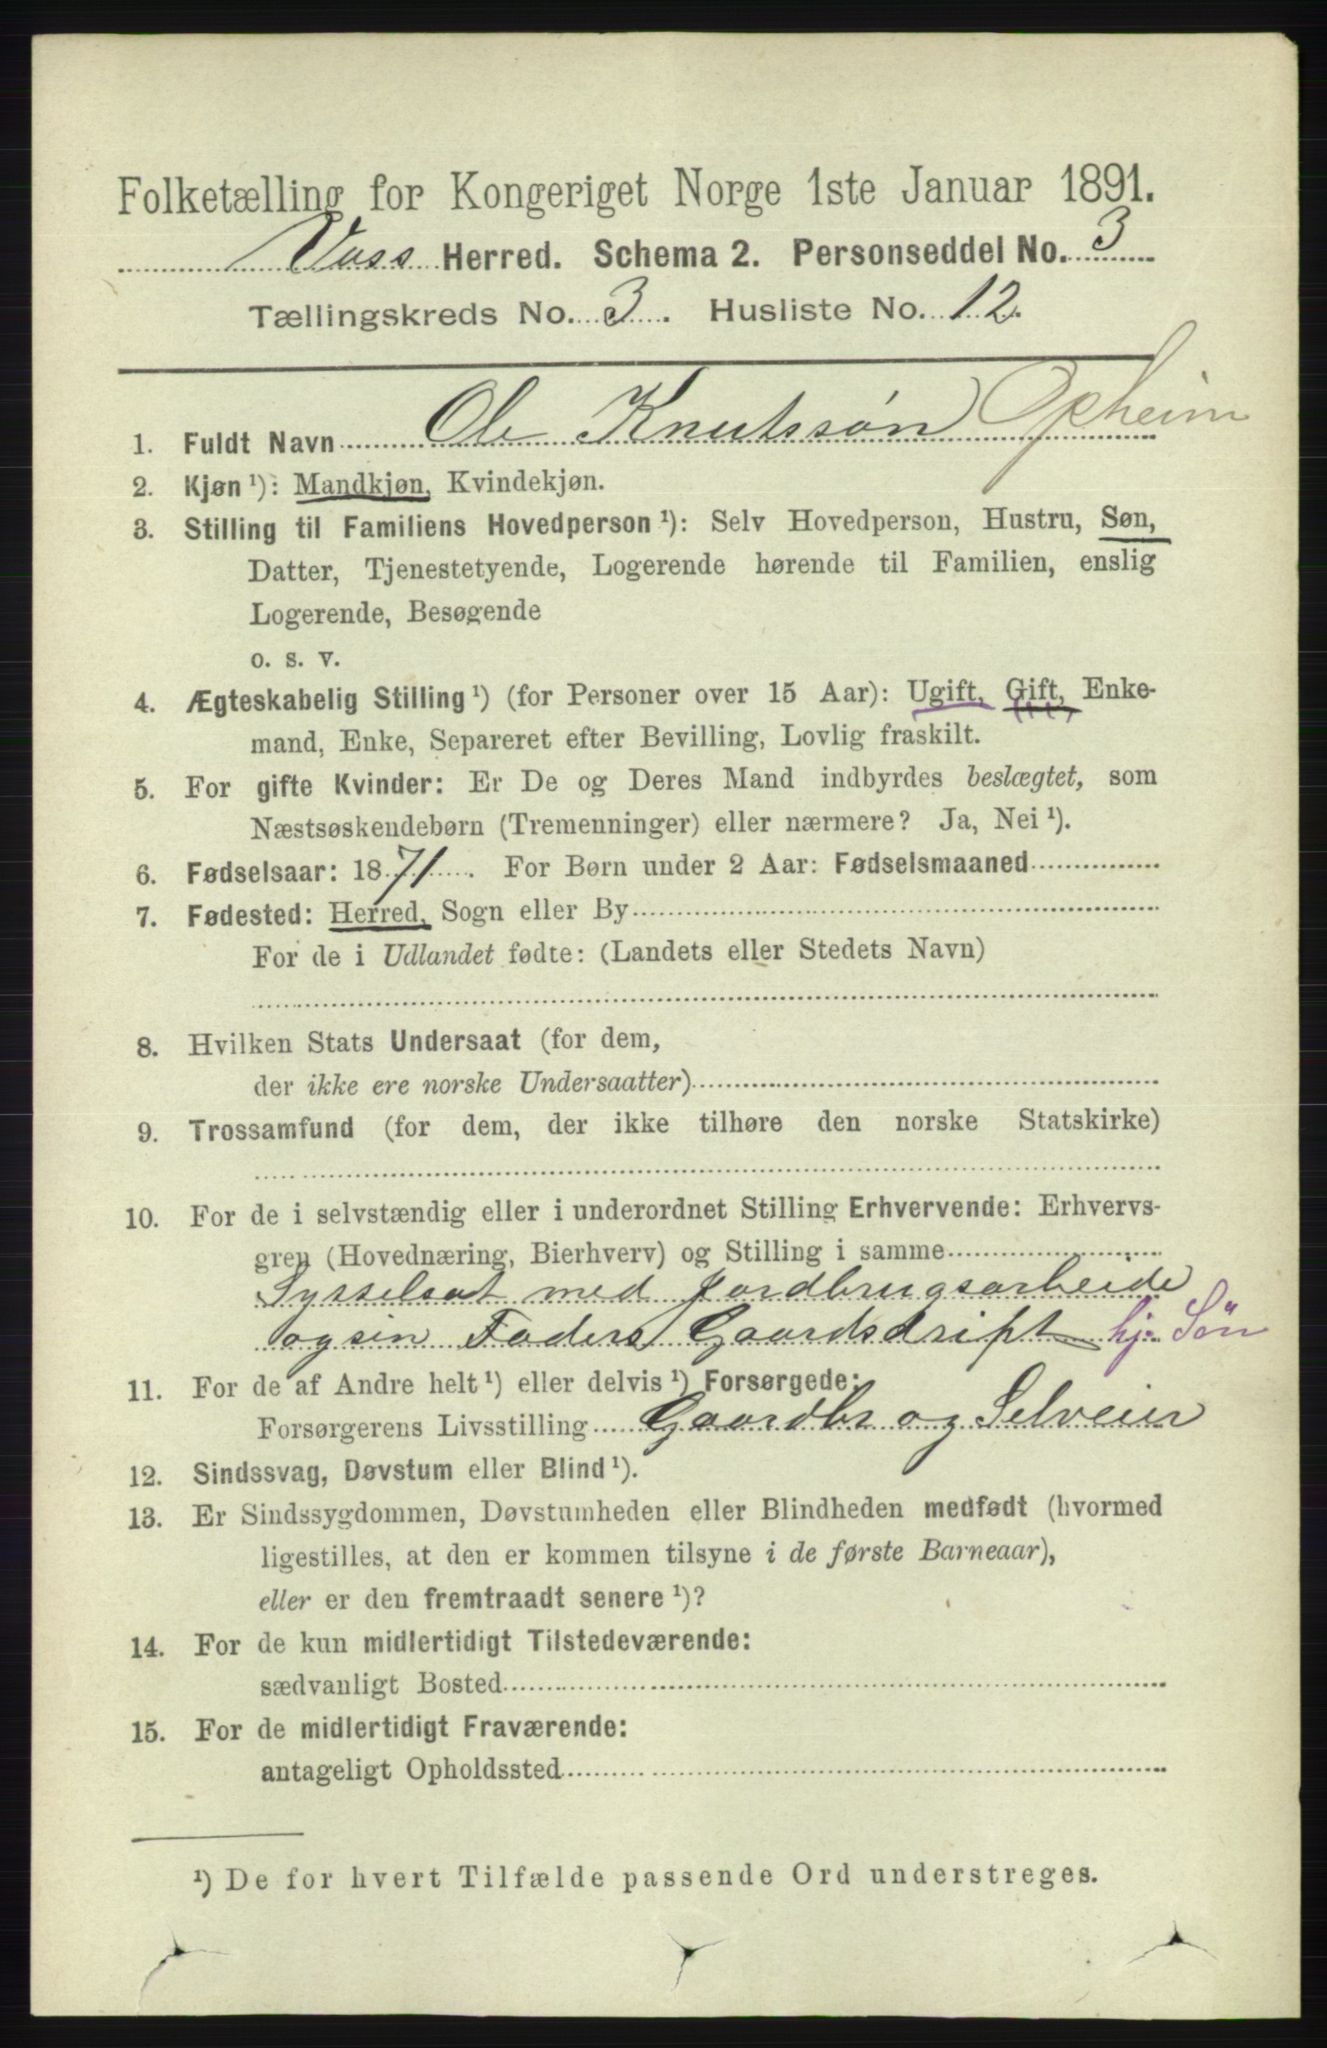 Folketælling for Kongeriget Norge 1ste Januar 1891.
Voss Herred. Schema 2. Personseddel No. 3
Tællingskreds No. 3. Husliste No. 12.
1. Fuldt Navn Ole Knutssøn Opheim
2. Kjøn ¹): Mandkjøn, Kvindekjøn.
3. Stilling til Familiens Hovedperson ¹): Selv Hovedperson, Hustru, Søn,
Datter, Tjenestetyende, Logerende hørende til Familien, enslig
Logerende, Besøgende
o. s. v.
4. Ægteskabelig Stilling ¹) (for Personer over 15 Aar): Ugift, Gift, Enke-
mand, Enke, Separeret efter Bevilling, Lovlig fraskilt.
5. For gifte Kvinder: Er De og Deres Mand indbyrdes beslægtet, som
Næstsøskendebørn (Tremenninger) eller nærmere? Ja, Nei ¹).
6. Fødselsaar: 1871. For Børn under 2 Aar: Fødselsmaaned
7. Fødested: Herred, Sogn eller By
For de i Udlandet fødte: (Landets eller Stedets Navn)
8. Hvilken Stats Undersaat (for dem,
der ikke ere norske Undersaatter)
9. Trossamfund (for dem, der ikke tilhøre den norske Statskirke)
10. For de i selvstændig eller i underordnet Stilling Erhvervende: Erhvervs-
gren (Hovednæring, Bierhverv) og Stilling i samme
Sysselsat med Jordbrugsarbeide
og sin Faders Gaardsdrift hj. Sön
11. For de af Andre helt ¹) eller delvis ¹) Forsørgede:
Forsørgerens Livsstilling Gaardbr og Selveier
12. Sindssvag, Døvstum eller Blind ¹).
13. Er Sindssygdommen, Døvstumheden eller Blindheden medfødt (hvormed
ligestilles, at den er kommen tilsyne i de første Barneaar),
eller er den fremtraadt senere ¹)?
14. For de kun midlertidigt Tilstedeværende:
sædvanligt Bosted
15. For de midlertidigt Fraværende:
antageligt Opholdssted
¹) De for hvert Tilfælde passende Ord understreges.